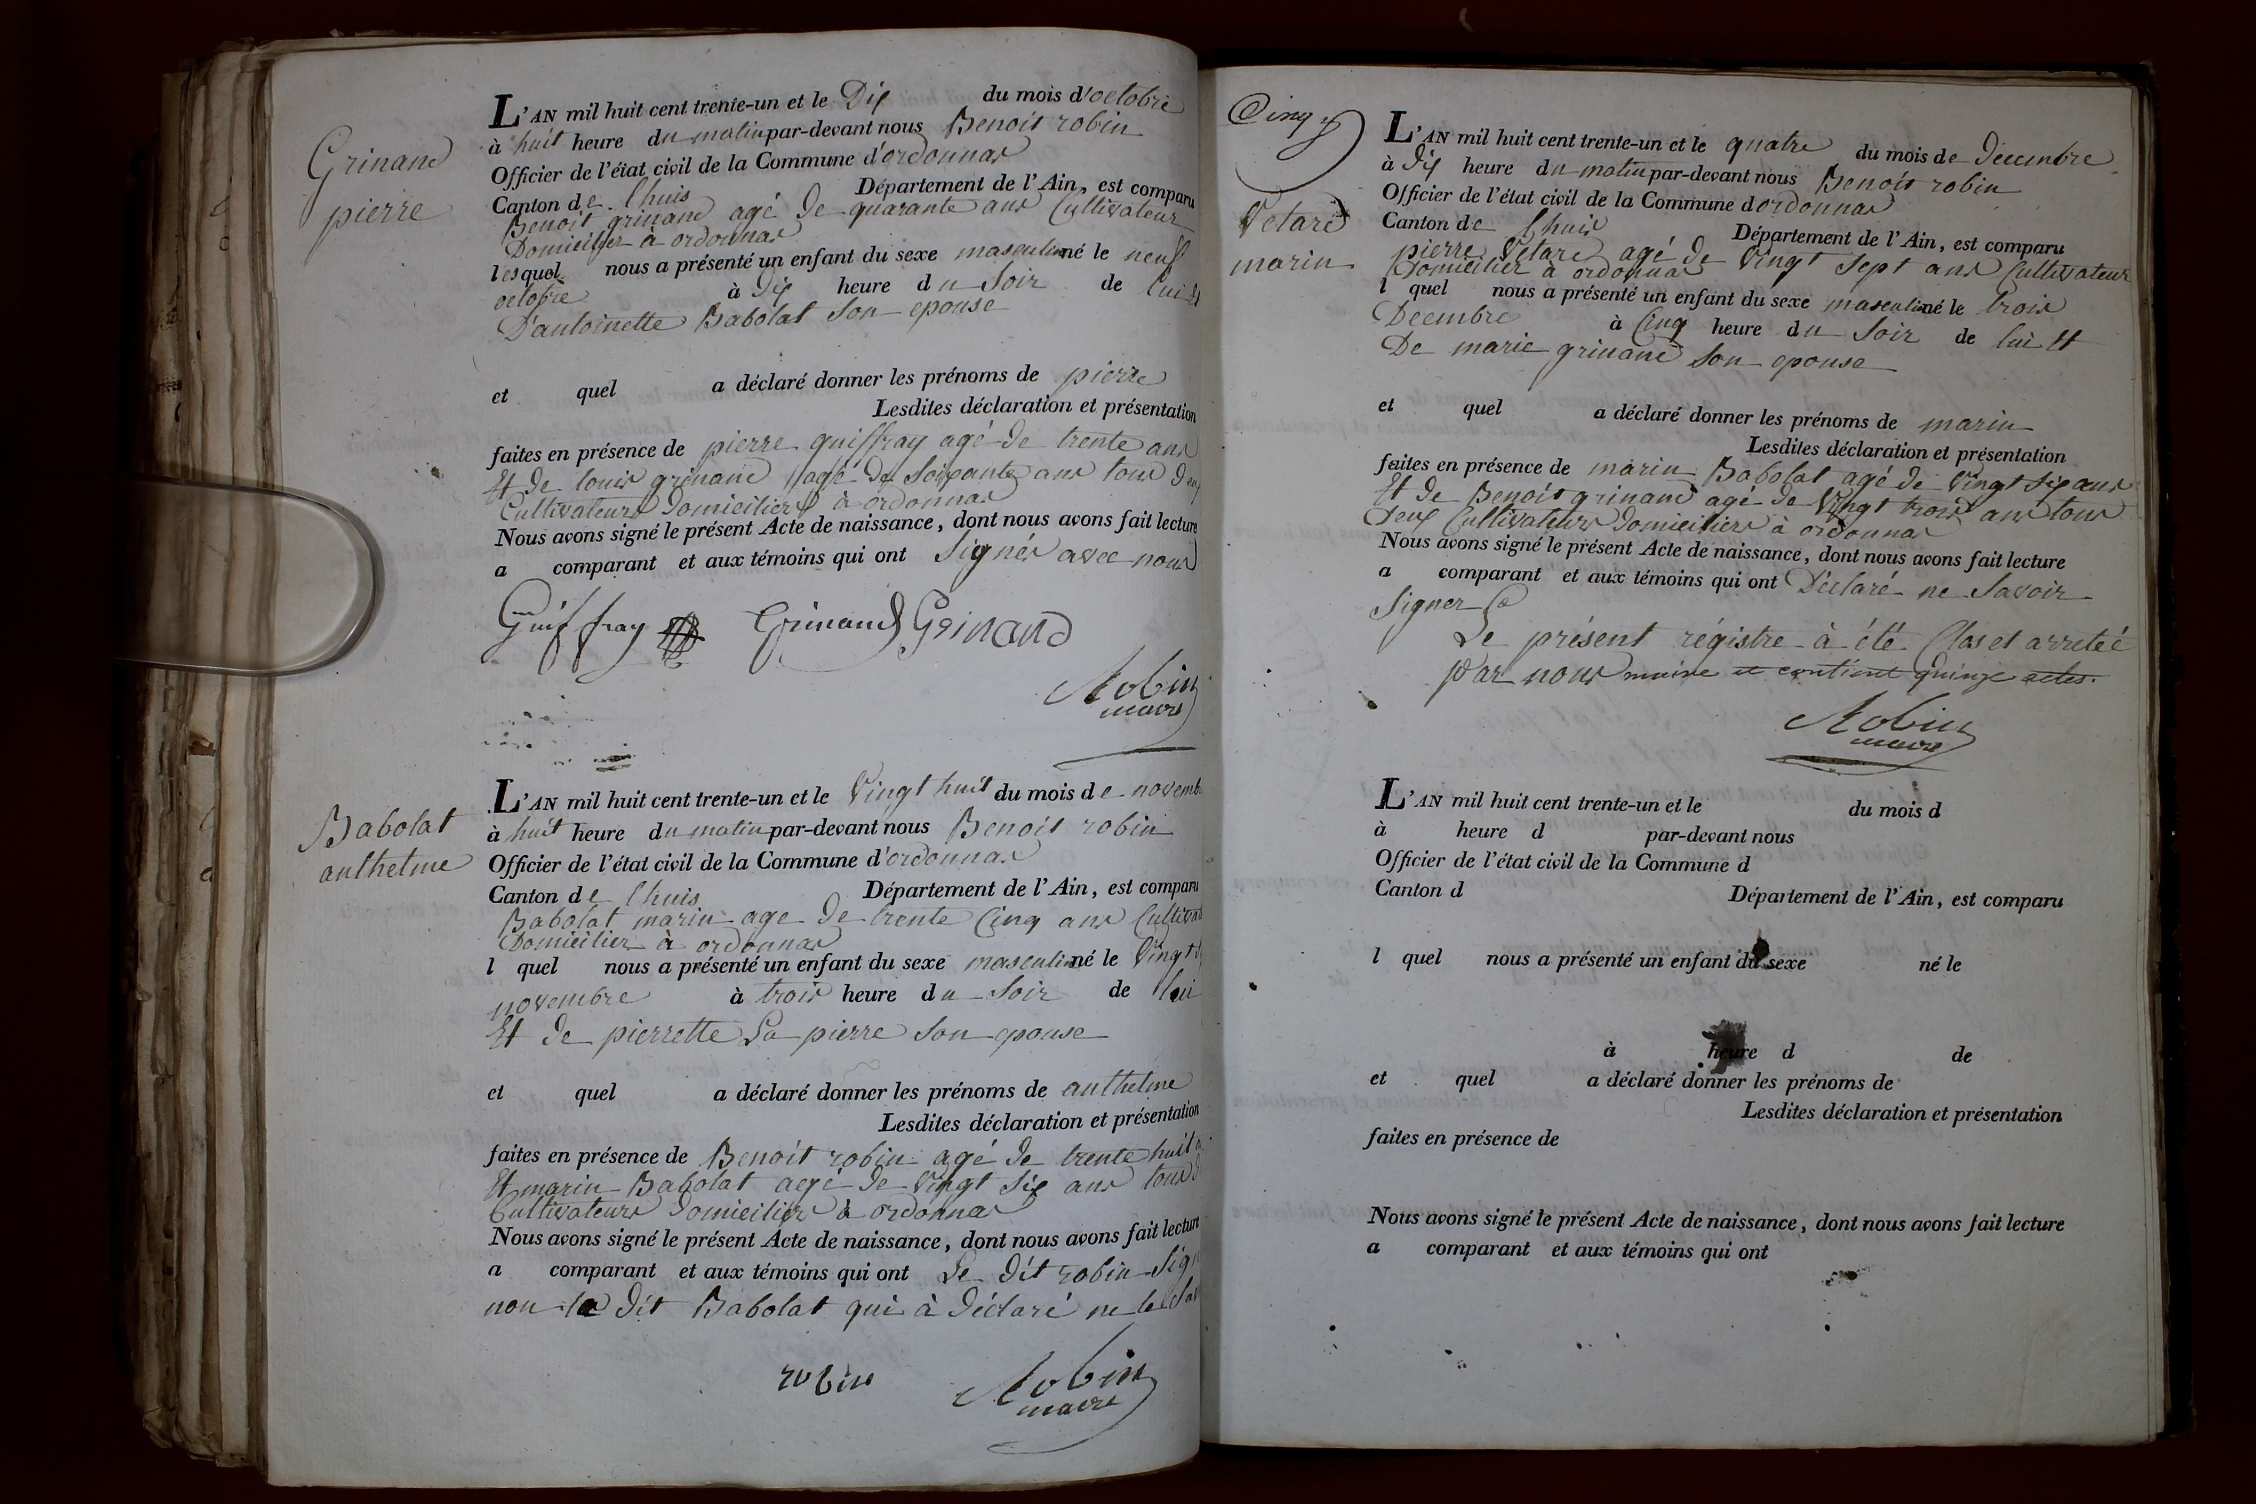 Grinand
pierre
L'AN mil huit cent trente-un et le Dix du mois d'octobre
à huit heure du matin par-devant nous Benoit robin
Officier de l'état civil de la Commune d'ordonnas
Canton de lhuis Département de l'Ain, est comparu
Benoit grinand agé de quarante ans Cultivateur
Domicilier à ordonnas
lesquel nous a présenté un enfant du sexe masculin né le neuf
octobre à Dix heure du Soir de lui Et
D'antoinette Babolat Son epouse
et quel a déclaré donner les prénoms de pierre
Lesdites déclaration et présentation
faites en présence de pierre guiffray agé de trente ans
Et de louis grinand agé de Soixante ans tous deux
Cultivateurs Domiciliers à ordonnas
Nous avons signé le présent Acte de naissance, dont nous avons fait lecture
a comparant et aux témoins qui ont Signés avec nous
Guiffray Grinand Grinand
Robin
maire
Babolat
anthelme
L'AN mil huit cent trente-un et le Vingt huit du mois de novemb
à huit heure du matin par-devant nous Benoit robin
Officier de l'état civil de la Commune d'ordonnas
Canton de lhuis Département de l'Ain, est comparu
Babolat marin age de trente Cinq ans Cultivat
Domicilier à ordonnas
l quel nous a présenté un enfant du sexe masculin né le Vingt
novembre à trois heure du Soir de lui
Et de pierrette La pierre Son epouse
et quel a déclaré donner les prénoms de anthelme
Lesdites déclaration et présentation
faites en présence de Benoit robin agé de trente huit
Et marin Babolat agé de Vingt Six ans tous
Cultivateurs Domicilier à ordonnas
Nous avons signé le présent Acte de naissance, dont nous avons fait lecture
a comparant et aux témoins qui ont Le Dit robin Sign
non le Dit Babolat qui à Déclaré ne le Sav
robin Robin
maire
Cinq
Vetard
marin
L'AN mil huit cent trente-un et le quatre du mois de Decembre
à Dix heure du matin par-devant nous Benoit robin
Officier de l'état civil de la Commune dordonnas
Canton de lhuis Département de l'Ain, est comparu
pierre Vetard agé de Vingt Sept ans Cultivateur
Domicilier à ordonnas
l quel nous a présenté un enfant du sexe masculin né le trois
Decembre à Cinq heure du Soir de lui Et
De marie grinand Son epouse
et quel a déclaré donner les prénoms de marin
Lesdites déclaration et présentation
faites en présence de marin Babolat agé de Vingt Six ans
Et de Benoit grinand agé de Vingt trois ans tous
Deux Cultivateurs Domiciliers à ordonnas
Nous avons signé le présent Acte de naissance, dont nous avons fait lecture
a comparant et aux témoins qui ont Déclaré ne Savoir
Signer
Le présent régistre à été Clos et arreteé
par nous maire et contient quinze actes.
Robin
maire
L'AN mil huit cent trente-un et le du mois d
à heure d par-devant nous
Officier de l'état civil de la Commune d
Canton d Département de l'Ain, est comparu
l quel nous a présenté un enfant du sexe né le
à heure d de
et quel a déclaré donner les prénoms de
Lesdites déclaration et présentation
faites en présence de
Nous avons signé le présent Acte de naissance, dont nous avons fait lecture
a comparant et aux témoins qui ont